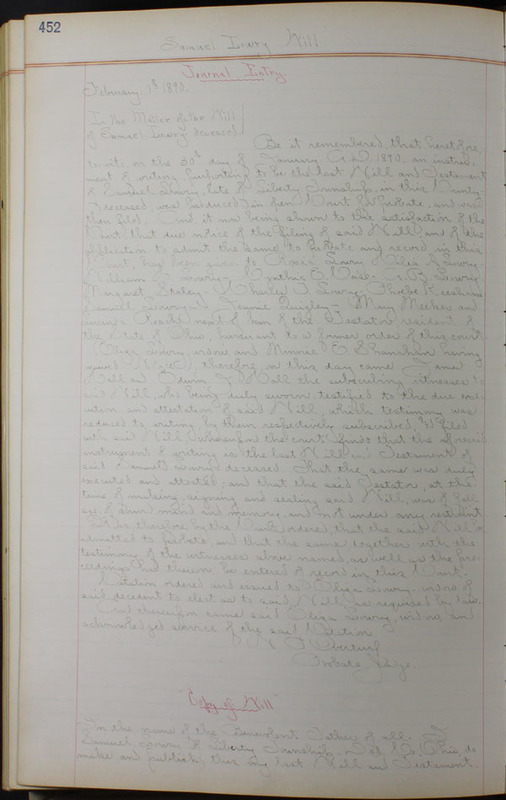 452
Samuel Lowry Will
Journal Entry.
February 1st 1890.
In the Matter of the Will
of Samuel Lowry deceased
Be it remembered, that heretofore,
to wit: on the 30th day of January A.D. 1890, an instru-
ment of writing purporting to be the last Will and Testament
of Samuel Lowry, late of Liberty Township in this County
deceased was produced in open Court for Probate, and was
then filed. And it now being shown to the satisfaction of the
Court that due notice of the filing of said Will, and of the
application to admit the same to Probate and record in this
Court, has been given to Lowry Lowry
William Lowry Cynthia Lowry
Margaret Charles Lowry Phoebe
Samuel Lowry Jennie Quigley Mary and
next of kin of the Testator resident of
the State of Ohio, pursuant to a former order of this court
Eliza Lowry, widow and Minnie E. having
therefore on this day came
and Edwin the subscribing witnesses to
said Will, who being duly sworn, testified to the due exe-
cution and attestation of said Will, which testimony was
reduced to writing, by them respectively subscribed, & filed
with said Will. Whereupon the court finds that the aforesaid
instrument of writing is the last Will and Testament of
said Samuel Lowry deceased. That the same was duly
executed and attested, and that the said Testator, at the
time of making, signing and sealing said Will, was of full
age, of sound mind and memory, and not under any restraint
It is therefore by the Court ordered, that the said Will be
admitted to Probate, and that the same together with the
testimony of the witnesses above named, as well as the pro-
ceedings had thereon, be entered of record in this Court.
Citation ordered and issued to Eliza Lowry, widow of
said decedent to elect as to said Will as required by law.
And thereupon came said Eliza Lowry, widow, and
acknowledged service of the said Citation
Probate Judge
Copy of Will
In the name of the Benevolent Father of all. I
Samuel Lowry of Liberty Township, Ohio do
make and publish this my last Will and Testament.